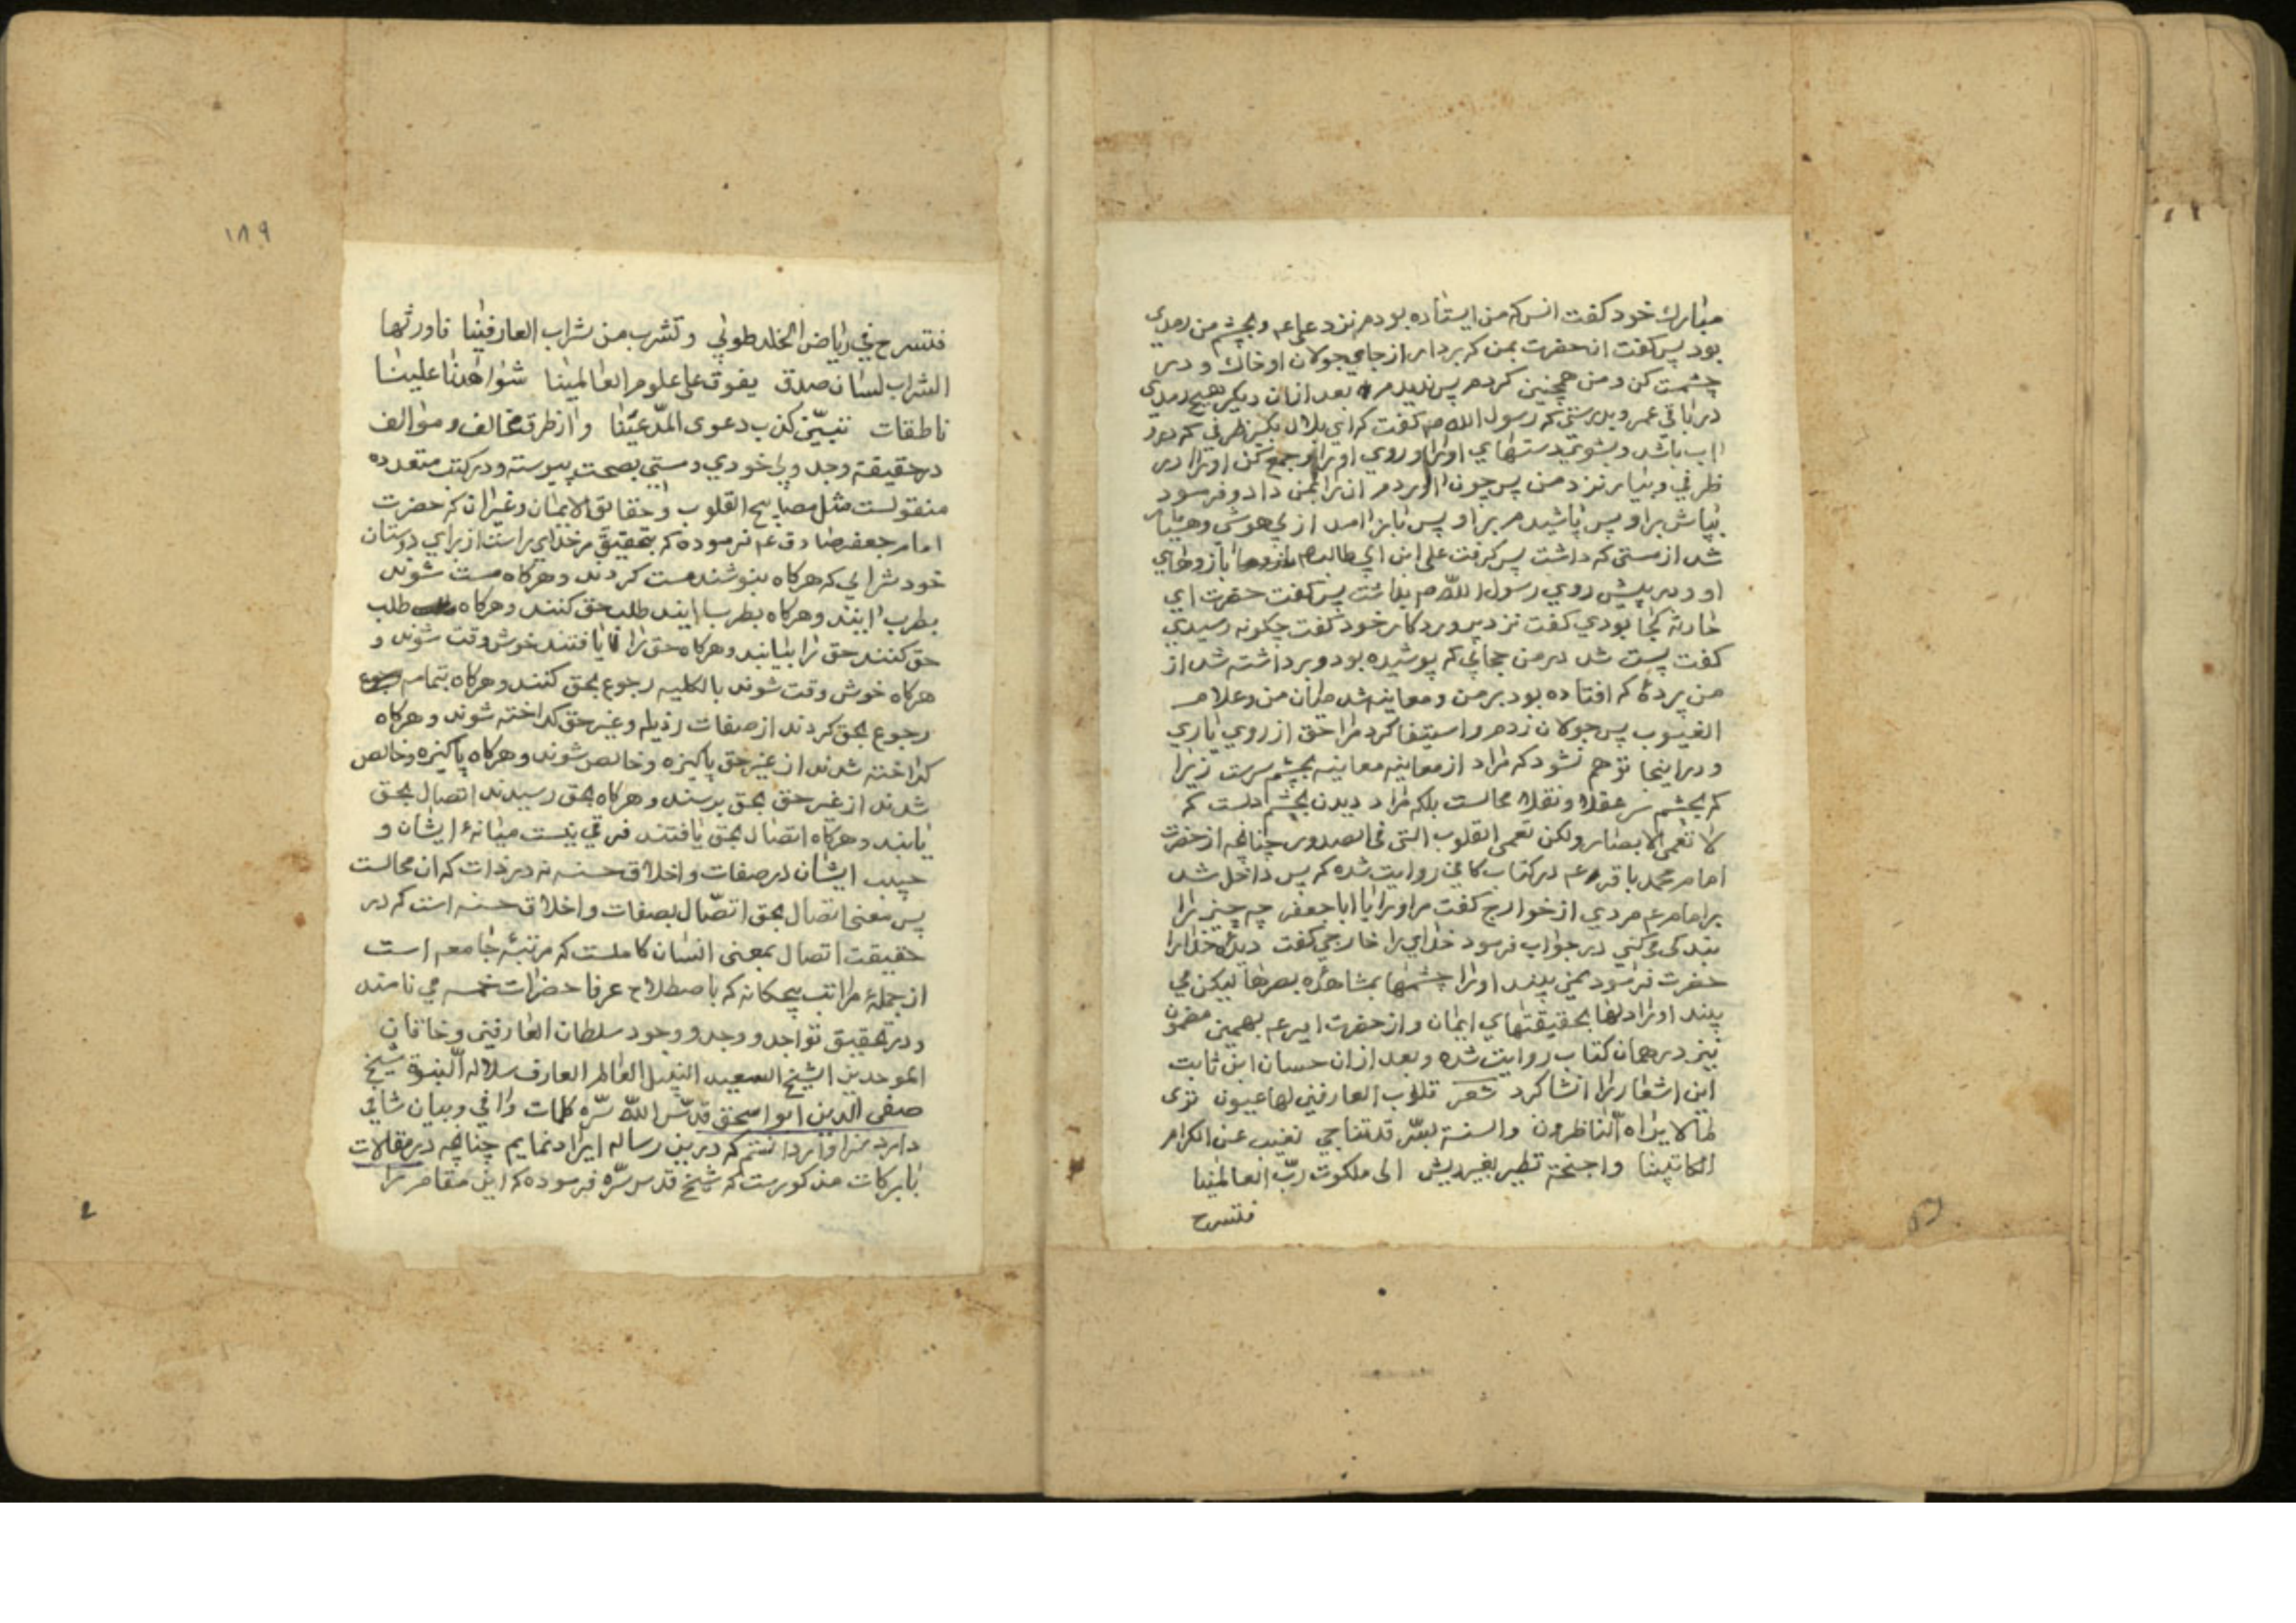 مبارك خود كفت انس كه من ايستاده بودم نزد على عم وبچشم من رمدي
بود پس كفت انحضرت بمن كه بردار از جاي جولان او خاك و در
چشمت كن ومن همچنين كردم پس نديدم بعد ازان ديكر هيچ رمدي
در باقي عمر وبدرستي كه رسول الله ص كفت كه اي بلال بكير ظرفي كه درو
اب باشد وبشوي دستهاي او را وروي او را وجمع كن او را در
ظرفي وبيار نزد من پس چون اوردم ان را بمن داد وفرمود
بپاش براو پس پاشيدم براو پس باز امد از بي هوشي وهشيار
شد از مستي كه داشت پس كرفت على ابن ابي طالب عم بازوهاي
او ودر پيش روي رسول الله ص بداشت پس كفت حضرت اي
حارثه كجا بودي كفت نزد پروردكار خود كفت چكونه رسيدي
كفت پست شد در من حجابي كه پوشيده بود وبرداشته شد از
من پردۀ كه افتاده بود بر من ومعاينه شد ميان من وعلام
الغيوب پس جولان زدم واستيفا كرد مرا حق از روي ياري
ودر اينجا توهم نشود كه مراد از معاينه معاينه بچشم سرست زيرا
كه بچشم سر عقلا ونقلا محالست بلكه مراد ديدن بچشم دلست كه
لا تعمى الابصار ولكن تعمى القلوب التي في الصدور چنانچه از حضرت
امام محمد باقر عم در كتاب كافي روايت شده كه پس داخل شد
بر امام عم مردي از خوارج كفت مر او را يا ابا جعفر چه چيز را
بندكي مي كني در جواب فرمود خداي را خارجي كفت ديدۀ خدا را
حضرت فرمود نمي بيند او را چشمها بمشاهدۀ بصرها ليكن مي
بيند او را دلها بحقيقتهاي ايمان واز حضرت امير عم بهمين مضمون
نيز در همان كتاب روايت شده وبعد ازان حسان ابن ثابت
اين اشعار را انشا كرد شعر قلوب العارفين لها عيون ترى
مالا يراه الناظرون والسنة بسر قد تناجي تغيب عن الكرام
الكاتبينا واجنحة تطير بغير ريش الى ملكوت رب العالمينا
فتسرح
١٨٩
فتسرح في رياض الخلد طوبي وتشرب من شراب العارفينا فاورثها
الشراب لسان صدق يفوق على علوم العالمينا شواهدنا علينا
ناطقات تبين كذب دعوى المدعينا واز طرق مخالف وموالف
در حقيقة وجد وبي خودي ومستي بصحت پيوسته ودر كتب متعدده
منقولست مثل مصابيح القلوب وحقايق الايمان وغير ان كه حضرت
امام جعفر صادق عم فرموده كه بتحقيق مر خداي راست از براي دوستان
خود شرابي كه هركاه بنوشند مست كردند وهركاه مست شوند
بطرب ايند وهركاه بطرب ايند طلب حق كنند وهركاه طلب
حق كنند حق را بيابند وهركاه حق را يافتند خوش وقت شوند و
هركاه خوش وقت شوند بالكليه رجوع بحق كنند وهركاه بتمامه
رجوع بحق كردند از صفات رذيله وغير حق كداخته شوند وهركاه
كداخته شدند از غير حق پاكيزه وخالص شوند وهركاه پاكيزه وخالص
شدند از غير حق بحق برسند وهركاه بحق رسيدند اتصال بحق
يابند وهركاه اتصال بحق يافتند فرقي نيست ميانۀ ايشان و
حبيب ايشان در صفات واخلاق حسنه نه در ذات كه ان محالست
پس معنى اتصال بحق اتصال بصفات واخلاق حسنه است كه در
حقيقت اتصال بمعنى انسان كاملست كه مرتبۀ جامعه است
از جملۀ مراتب پنجكانه كه باصطلاح عرفا حضرات خمسه مي نامند
ودر تحقيق تواجد ووجد ووجود سلطان العارفين وخاقان
الموحدين الشيخ السعيد النبيل العالم العارف سلاله النبوة شيخ
صفي الدين ابو اسحق قدس الله سره كلمات وافي وبيان شافي
دارد سزاوار دانستم كه درين رساله ايراد نمايم چنانچه در مقالات
بابركات مذكورست كه شيخ قدس سره فرموده كه اين مقام را